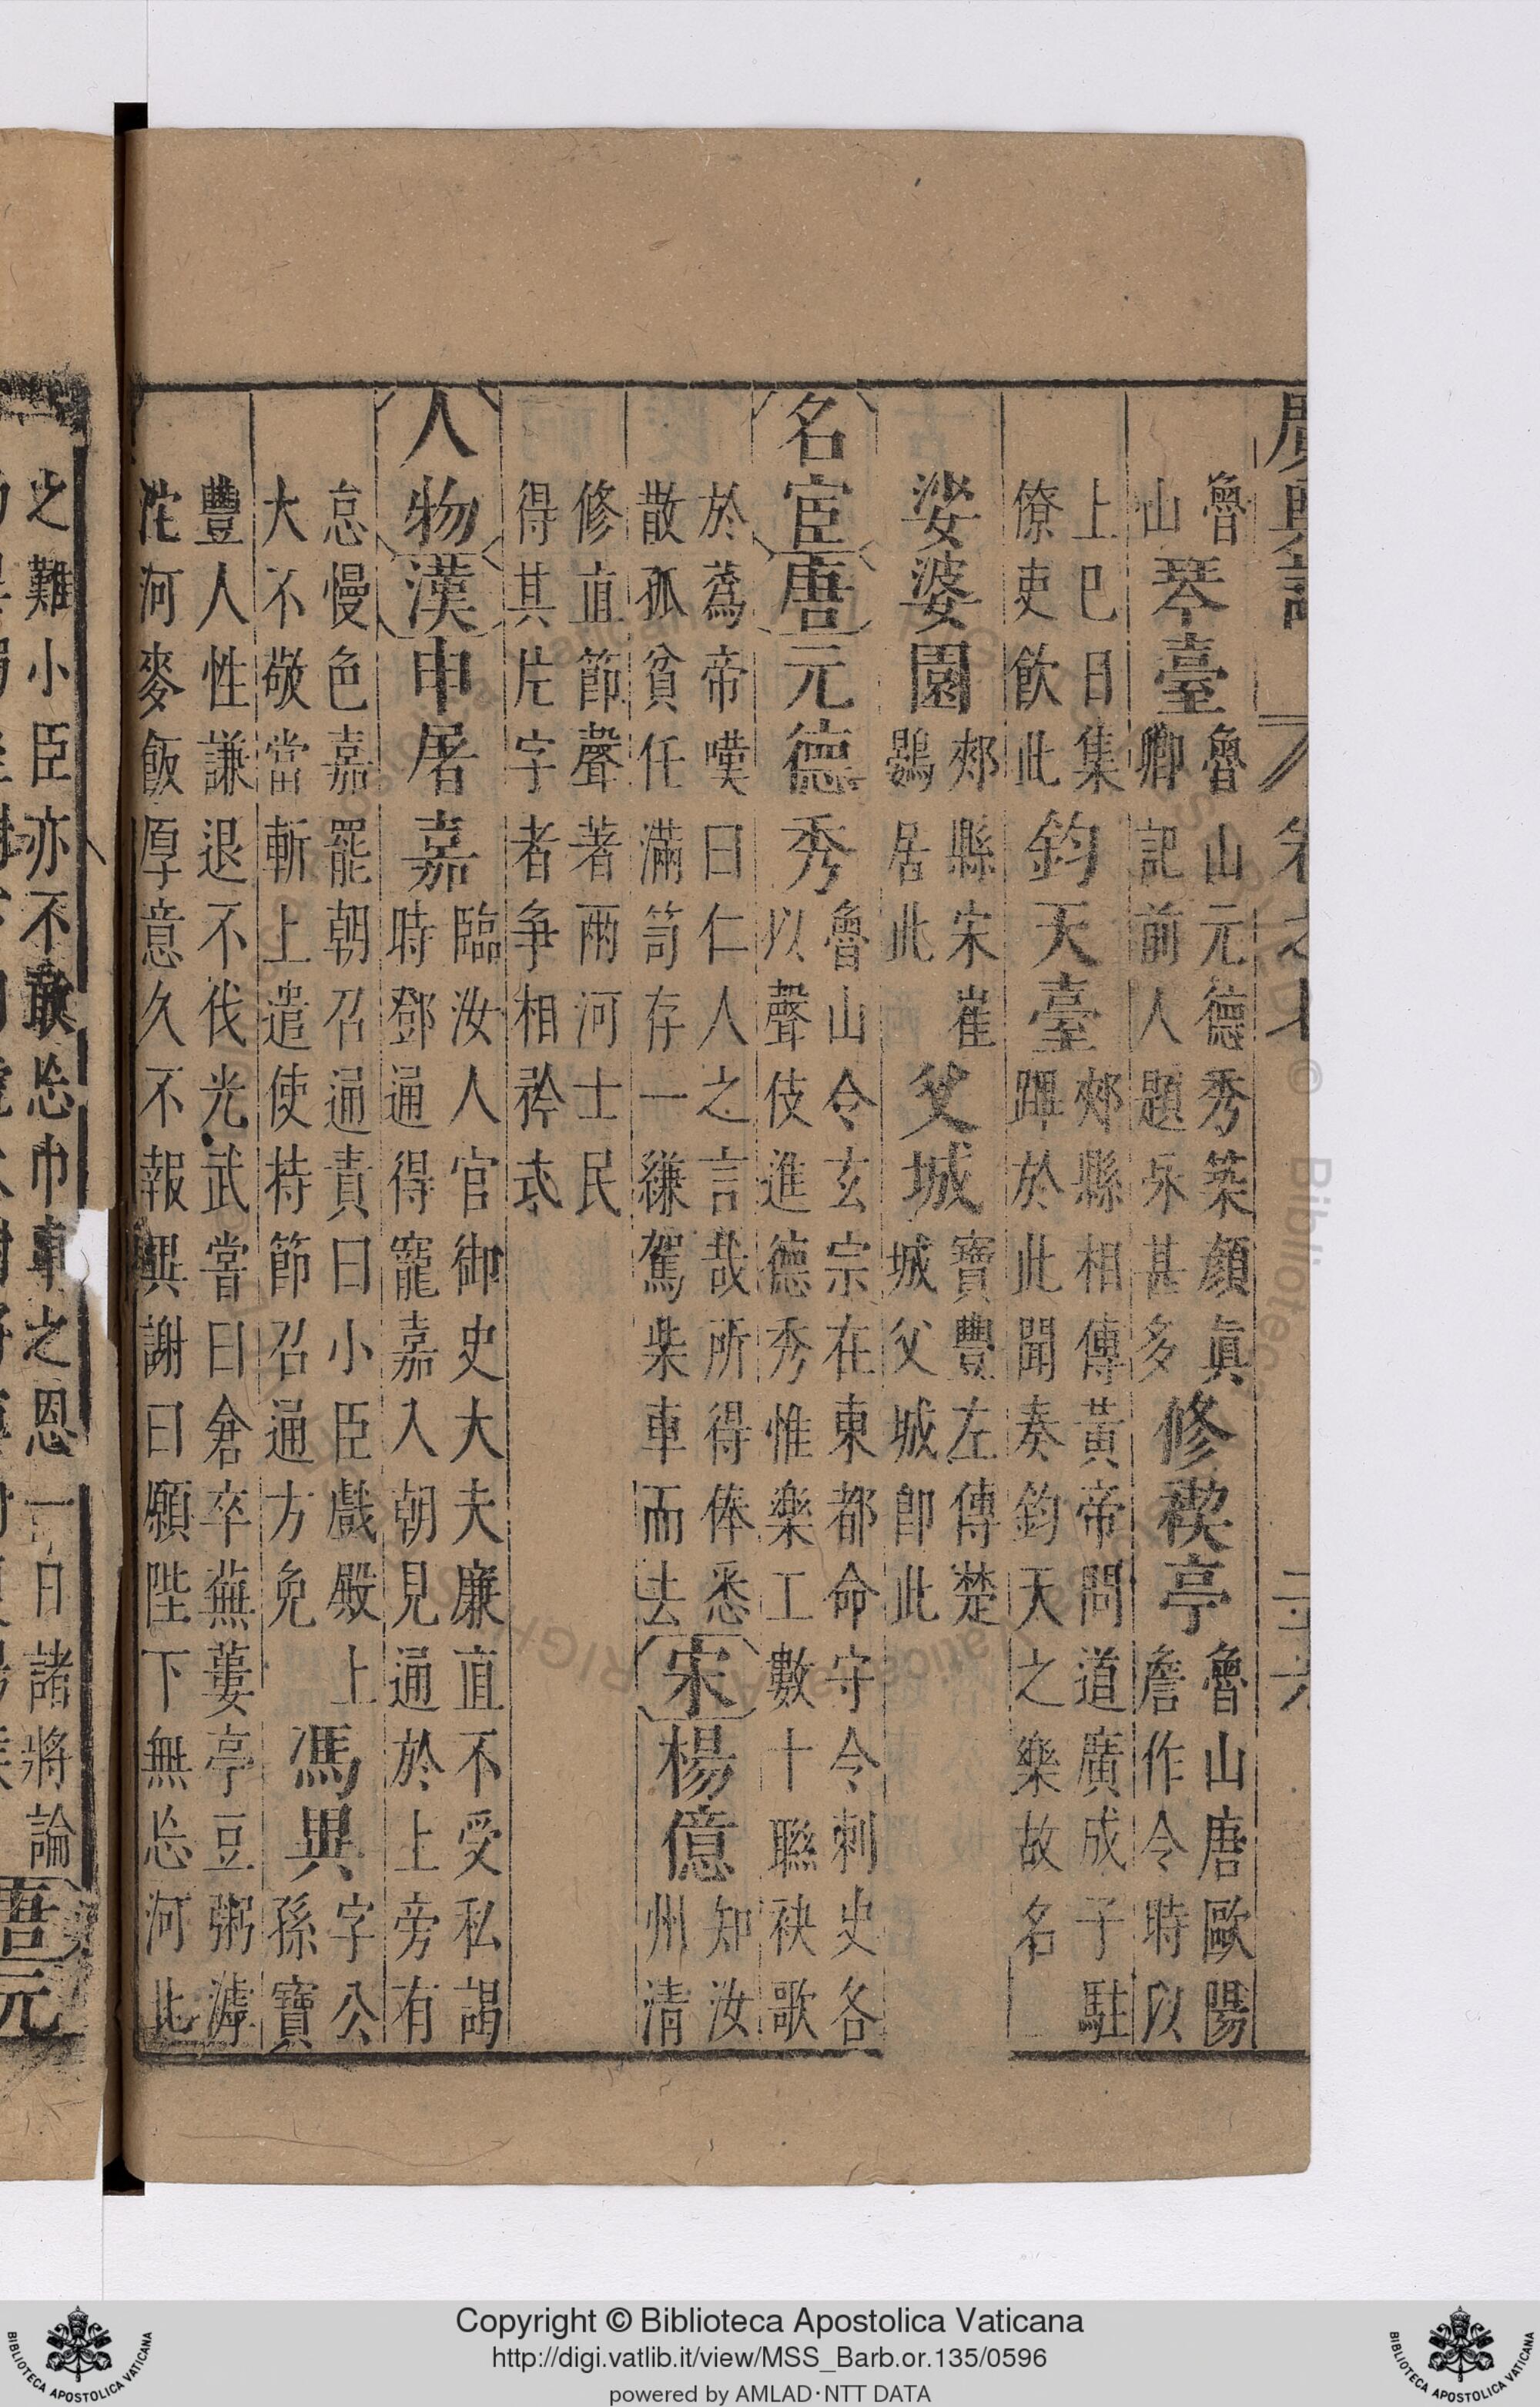 魯山琴臺魯山元德秀築顏眞卿記前人題咏甚多修禊亭魯山唐歐陽詹作令時以
上巳日集僚吏飲此鈞天臺郟縣相傳黃帝問道廣成子駐蹕於此聞奏鈞天之樂故名
娑婆園郟縣宋崔鷃居此父城寶豐左傳楚城父城卽此
名宦唐元德秀魯山令玄宗在東都命守令刺史各以聲伎進德秀惟樂工數十聯袂歌
於蔿帝嘆曰仁人之言哉所得俸悉散孤貧任滿笥存一縑駕柴車而去宋楊億知汝州清
修直節聲著兩河士民得其片字者爭相矜式
人物漢申屠嘉臨汝人官御史大夫廉直不受私謁時鄧通得寵嘉入朝見通於上旁有
怠慢色嘉罷朝召通責曰小臣戲殿上大不敬當斬上遣使持節召通方免馮異字公孫寶
豐人性謙退不伐光武嘗曰倉卒蕪蔞亭豆粥滹沱河麥飯厚意久不報異謝曰願陛下無忘河北
之難小臣亦不敢忘巾車之恩一日諸將論
Copyright © Biblioteca Apostolica Vaticana
http://digi.vatlib.it/view/MSS_Barb.or.135/0596
powered by AMLAD·NTT DATA
BIBLIOTECA APOSTOLICA VATICANA
BIBLIOTECA APOSTOLICA VATICANA